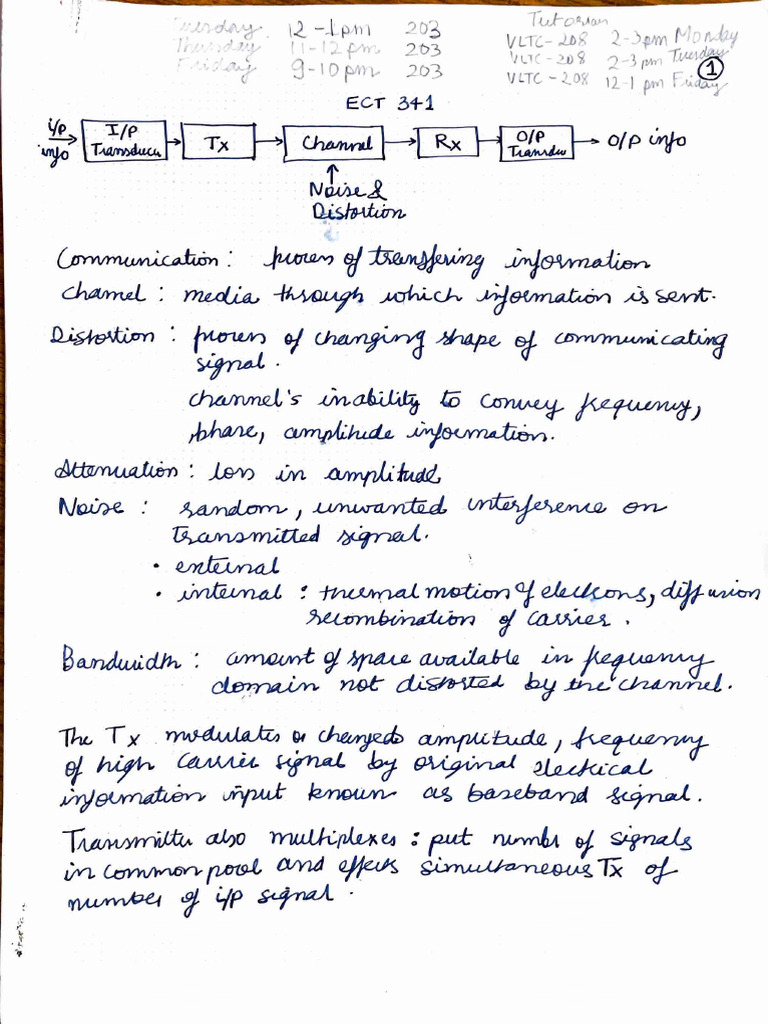 Tuesday 12-1pm 203
Thursday 11-12pm 203
Friday 9-10pm 203
Tutorial
VLTC-208 2-3pm Monday
VLTC-208 2-3pm Tuesday
VLTC-208 12-1pm Friday
1
ECT 341
i/p info → I/P Transducer → Tx → Channel → Rx → O/P Transdu → O/P info
Noise &
Distortion
Communication : process of transfering information
Channel : media through which information is sent.
Distortion : process of changing shape of communicating
signal.
channel's inability to convey frequency,
phase, amplitude information.
Attenuation : loss in amplitude
Noise : random, unwanted interference on
transmitted signal.
• external
• internal : thermal motion of electrons, diffusion
recombination of carrier.
Bandwidth : amount of space available in frequency
domain not distorted by the channel.
The Tx modulates or changes amplitude, frequency
of high carrier signal by original electrical
information input known as baseband signal.
Transmitter also multiplexes : put number of signals
in common pool and effects simultaneous Tx of
number of i/p signal.